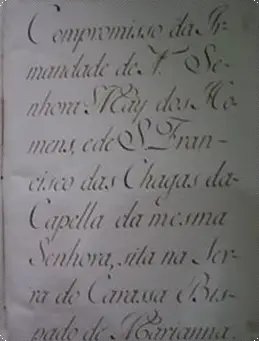 Compromisso da Ir-
mandade de N. Se-
nhora May dos Ho-
mens, e de S. Fran-
cisco das Chagas da
Capella da mesma
Senhora, sita na Ser-
ra do Carassa Bis-
pado de Marianna.